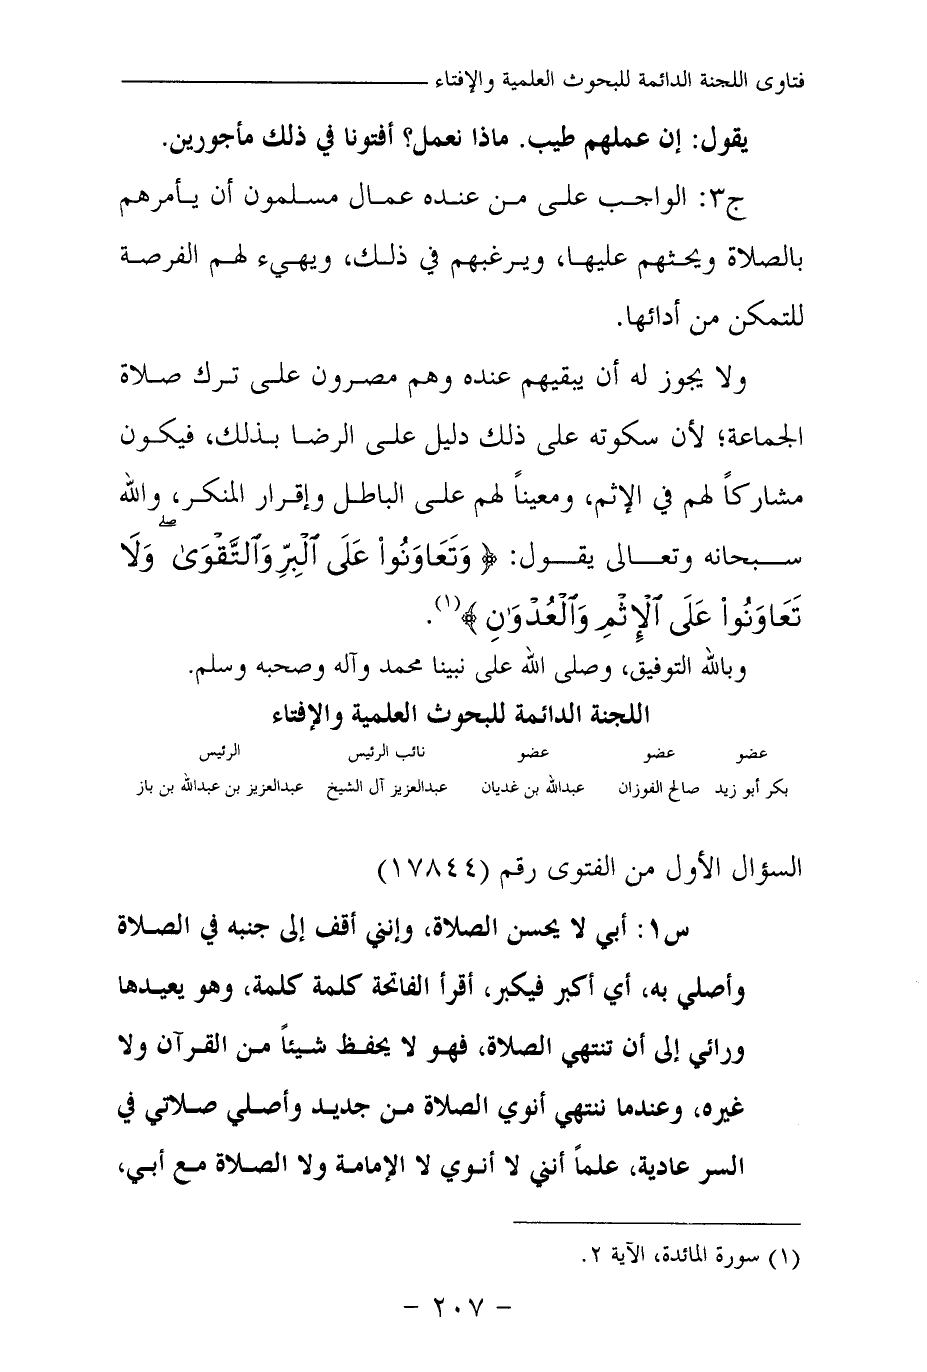 فتاوى اللجنة الدائمة للبحوث العلمية والإفتاء
يقول: إن عملهم طيب. ماذا نعمل؟ أفتونا في ذلك مأجورين.
ج٣: الواجب على من عنده عمال مسلمون أن يأمرهم
بالصلاة ويحثهم عليها، ويرغبهم في ذلك، ويهيء لهم الفرصة
للتمكن من أدائها.
ولا يجوز له أن يبقيهم عنده وهم مصرون على ترك صلاة
الجماعة؛ لأن سكوته على ذلك دليل على الرضا بذلك، فيكون
مشاركاً لهم في الإثم، ومعيناً لهم على الباطل وإقرار المنكر، والله
سبحانه وتعالى يقول: ﴿ وَتَعَاوَنُواْ عَلَى ٱلۡبِرِّ وَٱلتَّقۡوَىٰۖ وَلَا
تَعَاوَنُواْ عَلَى ٱلۡإِثۡمِ وَٱلۡعُدۡوَٰنِ ﴾(١).
وبالله التوفيق، وصلى الله على نبينا محمد وآله وصحبه وسلم.
اللجنة الدائمة للبحوث العلمية والإفتاء
عضو عضو عضو نائب الرئيس الرئيس
بكر أبو زيد صالح الفوزان عبدالله بن غديان عبدالعزيز آل الشيخ عبدالعزيز بن عبدالله بن باز
السؤال الأول من الفتوى رقم (١٧٨٤٤)
س١: أبي لا يحسن الصلاة، وإنني أقف إلى جنبه في الصلاة
وأصلي به، أي أكبر فيكبر، أقرأ الفاتحة كلمة كلمة، وهو يعيدها
ورائي إلى أن تنتهي الصلاة، فهو لا يحفظ شيئاً من القرآن ولا
غيره، وعندما ننتهي أنوي الصلاة من جديد وأصلي صلاتي في
السر عادية، علماً أنني لا أنوي لا الإمامة ولا الصلاة مع أبي،
(١) سورة المائدة، الآية ٢.
– ٢٠٧ –